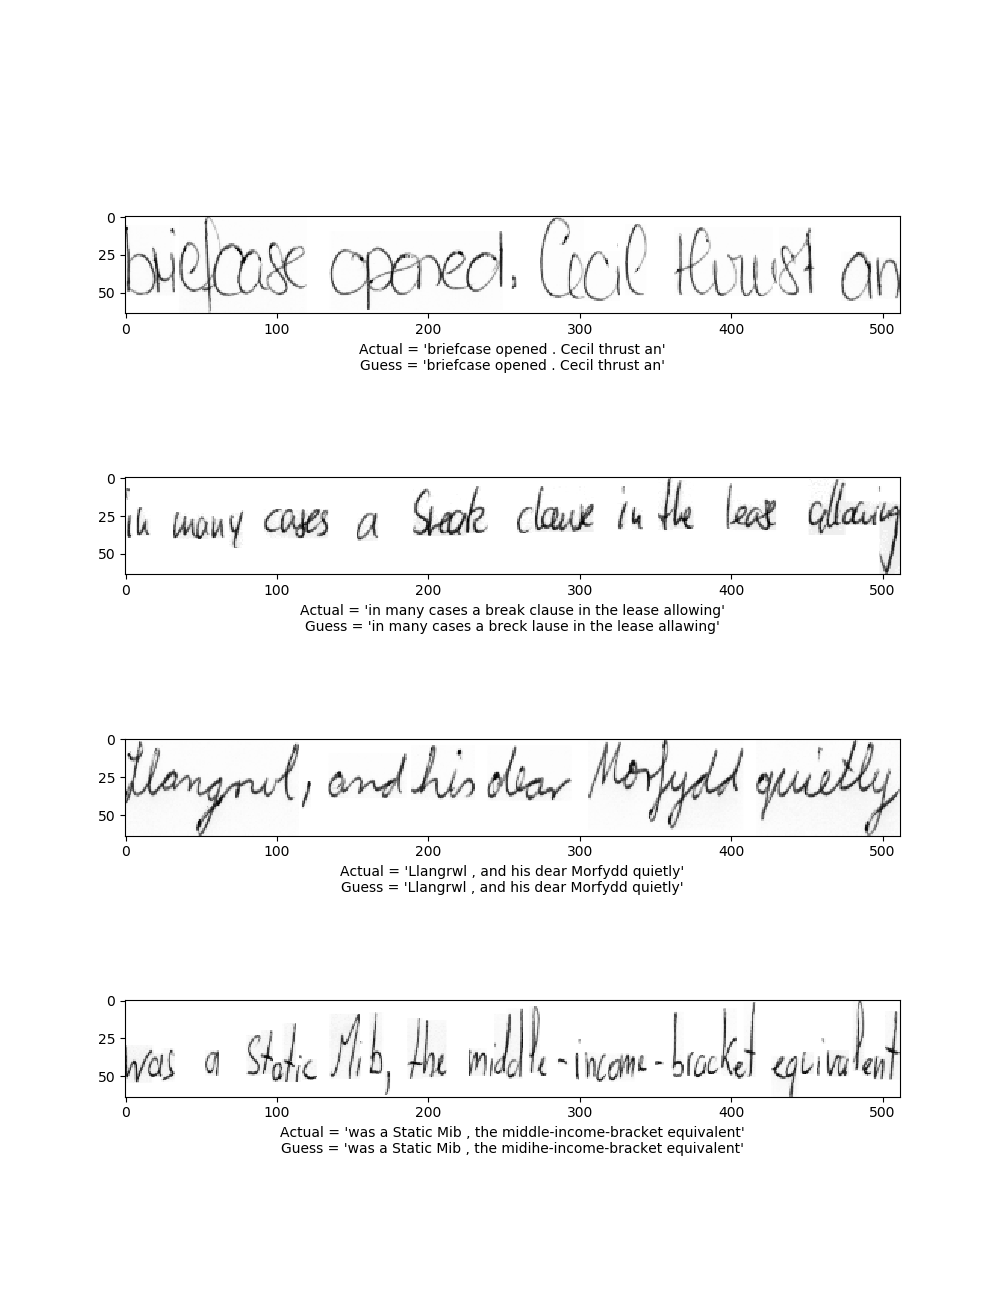 0
25
50
briefcase opened. Cecil thrust an
0 100 200 300 400 500
Actual = 'briefcase opened . Cecil thrust an'
Guess = 'briefcase opened . Cecil thrust an'
0
25
50
in many cases a break clause in the lease allowing
0 100 200 300 400 500
Actual = 'in many cases a break clause in the lease allowing'
Guess = 'in many cases a breck lause in the lease allawing'
0
25
50
Llangrwl, and his dear Morfydd quietly
0 100 200 300 400 500
Actual = 'Llangrwl , and his dear Morfydd quietly'
Guess = 'Llangrwl , and his dear Morfydd quietly'
0
25
50
was a Static Mib, the middle-income-bracket equivalent
0 100 200 300 400 500
Actual = 'was a Static Mib , the middle-income-bracket equivalent'
Guess = 'was a Static Mib , the midihe-income-bracket equivalent'